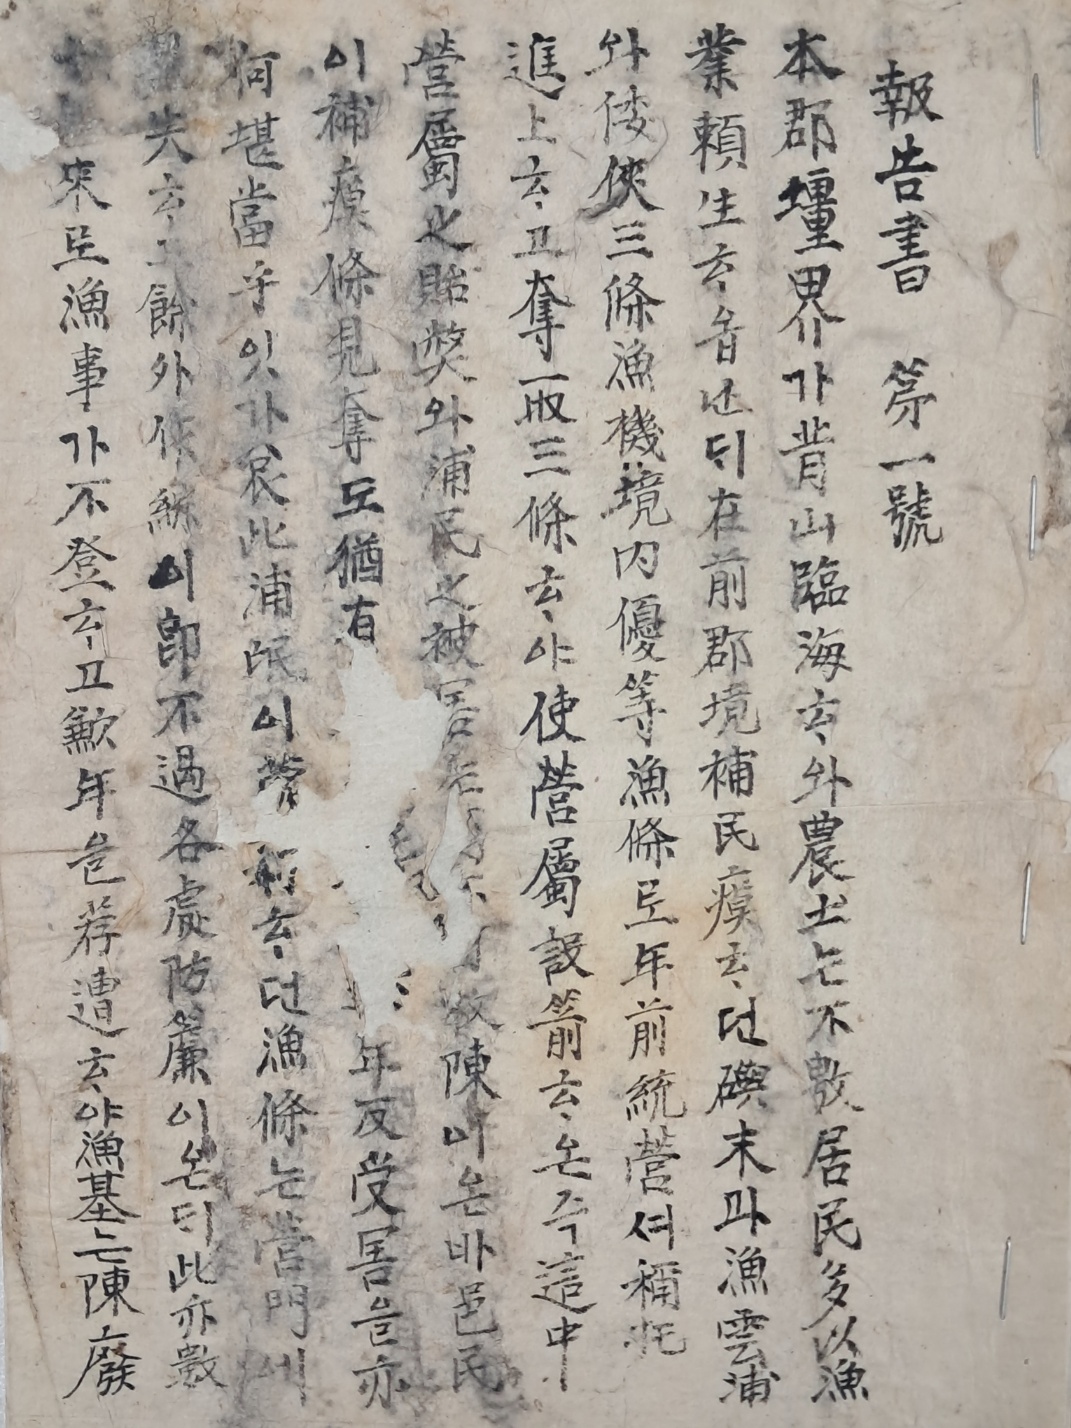 報告書 第一號
本郡壃界가背山臨海ᄒᆞ와農土ᄂᆞᆫ不敷居民多以漁
業賴生ᄒᆞ음ᄂᆞᆫᄃᆡ在前郡境補民瘼ᄒᆞ던礖末과漁雲浦
와倭俠三條漁機境內優等漁條로年前統營셔稱托
進上ᄒᆞ고奪取三條ᄒᆞ야使營屬設箭ᄒᆞ온즉這中
營屬之貽獘와浦民之被害 敢陳이온바邑民
이補瘼條見奪도猶有 年反受害음亦
何堪當乎잇가哀此浦氓이營 ᄒᆞ던漁條ᄂᆞᆫ營門에
失ᄒᆞ고餘外 이卽不過各處防簾이온ᄃᆡ此亦數
來로漁事가不登ᄒᆞ고歉年을荐遭ᄒᆞ야漁基ᄂᆞᆫ陳廢